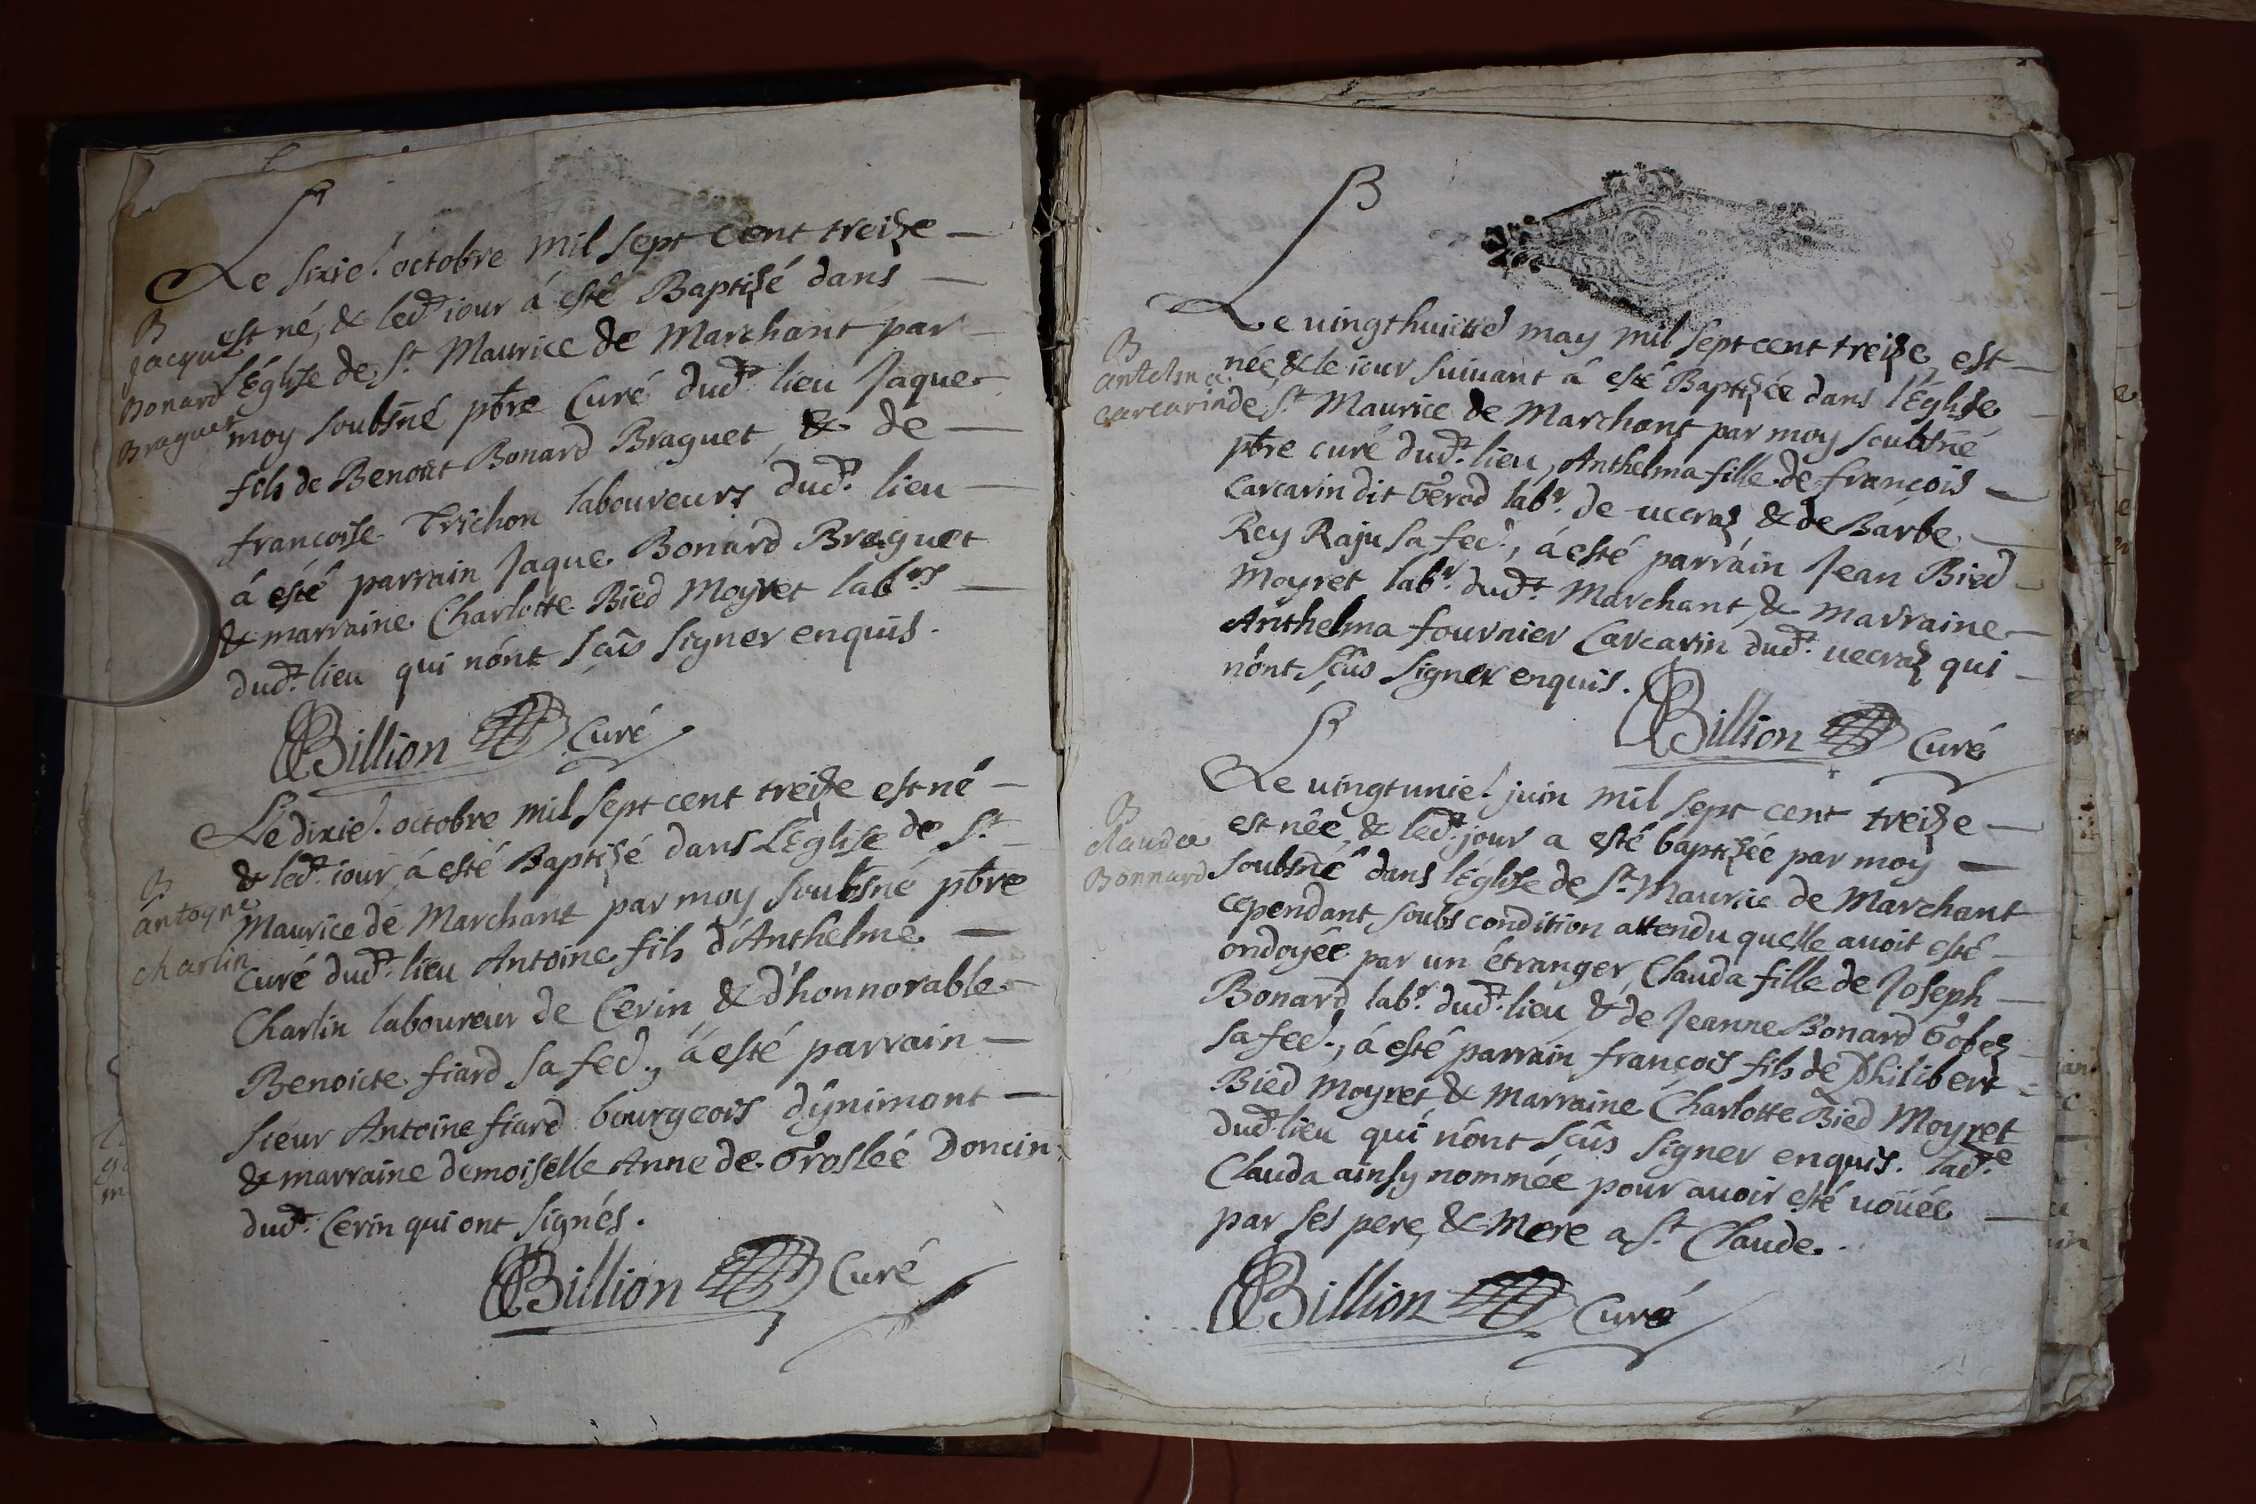 Le sixie.^ octobre mil sept cent treize
est né, & led.^t iour á esté Baptizé dans
l'Église de S.^t Maurice de Marchant par
moy soubsné pbre Curé dud.^t lieu Jaque
fils de Benoit Bonard Braguet, & de
francoise Trichon laboureurs dud.^t lieu
á esté parrain Jaque Bonard Braguet
& marraine Charlotte Bied Moyret lab.^rs
dud.^t lieu qui nónt sçûs signer enquis.
B
Jacque
Bonard
Braguet
Billion Curé
Le dixie.^ octobre mil sept cent treize est né
& led.^t iour á esté Baptizé dans L'Église de S.^t
Maurice de Marchant par moy soubsné pbre
Curé dud.^t lieu Antoine fils d'Anthelme
Charlin laboureur de Cerin & d'honnorable
Benoicte fiard sa fed., á esté parrain
sieur Antoine fiard bourgeois dÿnimont
& marraine demoiselle Anne de Groslée Doncin
dud.^t Cerin qui ont signés.
B
antoyne
charlin
Billion Curé
B
Le uingthuictie may mil sept cent treize, est
née, & le iour suiuant á esté Baptizée dans l'Église
de S.^t Maurice de Marchant par moy soubsné
pbre curé dud.^t lieu, Anthelma fille de françois
Carcarin dit Gérod lab.^r de uecraz & de Barbe
Rey Raju sa fed., á esté parrain Jean Bied
Moyret lab.^r dud.^t Marchant, & marraine
Anthelma fournier Carcarin dud.^t uecraz qui
nónt sçûs signer enquis.
B
antelma
carcarin
Billion Curé
Le uingtunie.^ juin mil sept cent treize
est née, & led.^t jour a esté baptizée par moy
soubsné dans l'Église de S.^t Maurice de Marchant
cependant soubs condition attendu quelle auoit esté
ondoyée par un étranger, Clauda fille de Joseph
Bonard lab.^r dud.^t lieu, & de Jeanne Bonard Gobez
sa fed., á esté parrain françois fils de Philibert
Bied Moyret & Marraine Charlotte Bied Moyret
dud.^t lieu qui nónt sçûs signer enquis. lad.^te
Clauda ainsy nommée pour auoir esté uoüée
par ses pere, & Mere a S.^t Claude.
B
claudaz
Bonnard
Billion Curé